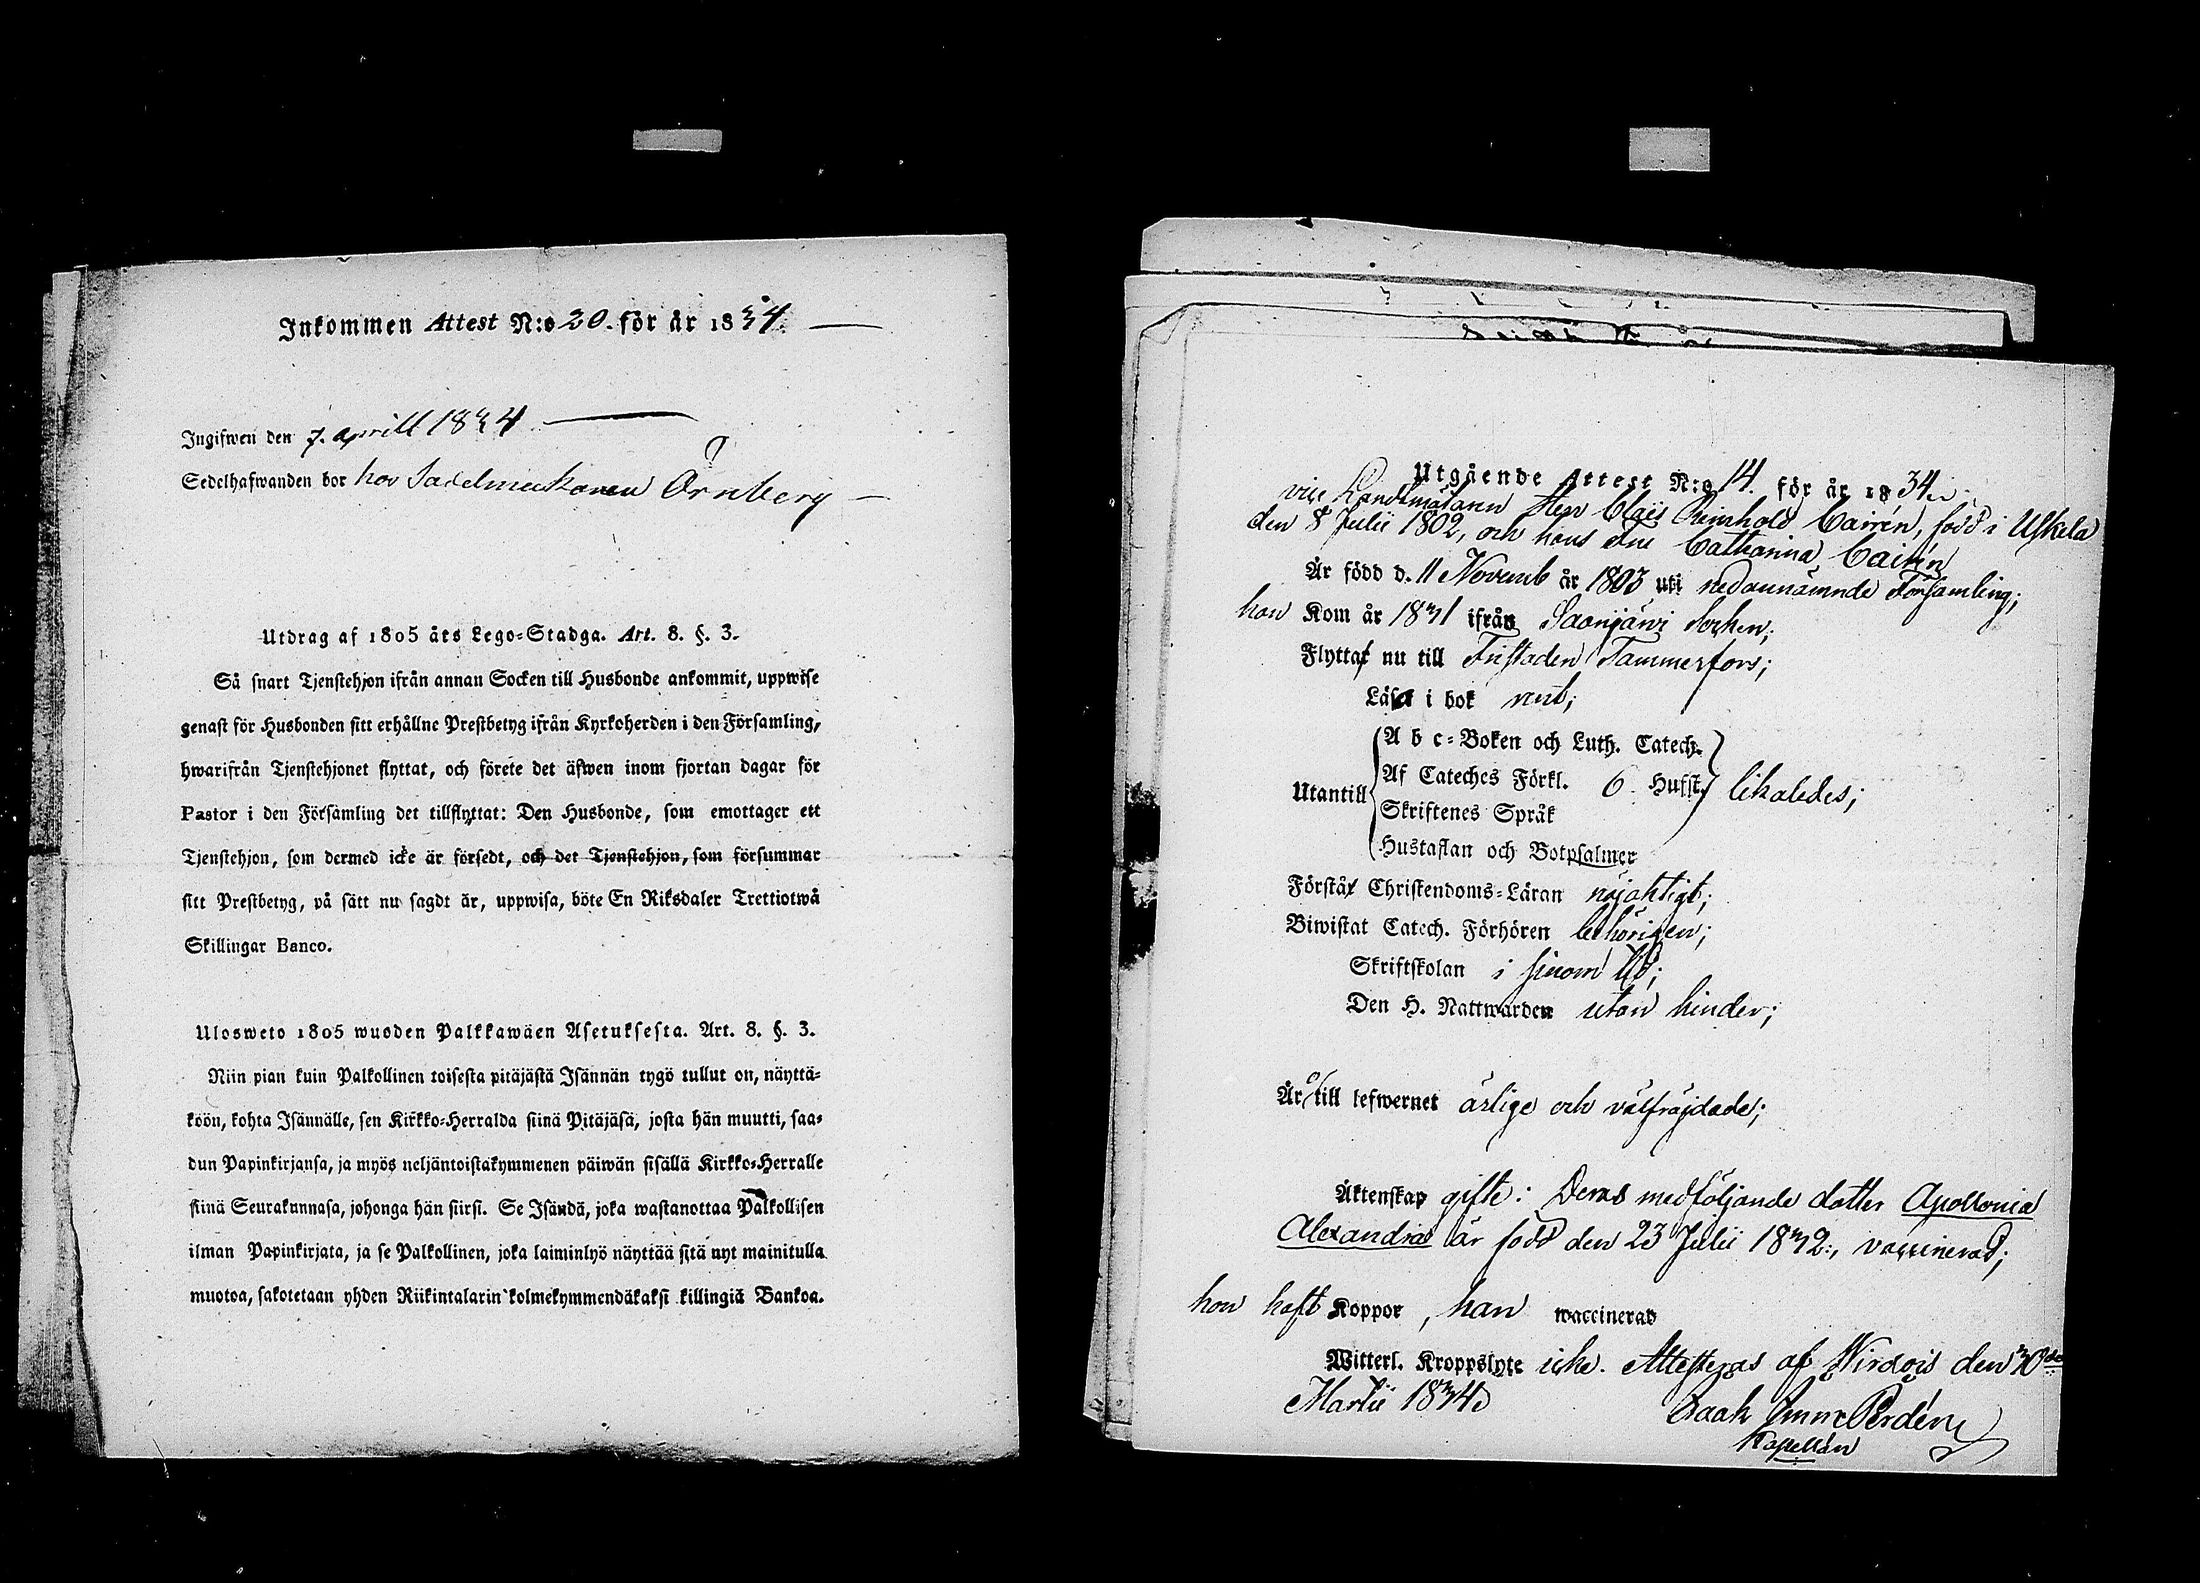 Inkommen Attest N:o 20. för år 1834.
Ingifwen den 7. aprill 1834
Sedelhafwanden bor hos Sadelmakaren Örnberg
Utdrag af 1805 åts Lego-Stadga. Art. 8. §. 3.
Så snart Tjenstehjon ifrån annan Socken till Husbonde ankommit, uppwise
genast för Husbonden sitt erhållne Prestbetyg ifrån Kyrkoherden i den Församling,
hwarifrån Tjenstehjonet flyttat, och förete det äfwen inom fjortan dagar för
Pastor i den Församling det tillflyttat: Den Husbonde, som emottager ett
Tjenstehjon, som dermed icke är försedt, och det Tjenstehjon, som försummar
sitt Prestbetyg, på sätt nu sagdt är, uppwisa, böte En Riksdaler Trettiotwå
Skillingar Banco.
Ulosweto 1805 wuoden Palkkawäen Asetuksesta. Art. 8. §. 3.
Niin pian kuin Palkollinen toisesta pitäjästä Isännän tygö tullut on, näyttä-
köön, kohta Isännälle, sen Kirkko-Herralda siinä Pitäjäsä, josta hän muutti, saa-
dun Papinkirjansa, ja myös neljäntoistakymmenen päiwän sisällä Kirkko-Herralle
siinä Seurakunnasa, johonga hän siirsi. Se Isändä, joka wastanottaa Palkollisen
ilman Papinkirjata, ja se Palkollinen, joka laiminlyö näyttää sitä nyt mainitulla
muotoa, sakotetaan yhden Riikintalarin kolmekymmendäkaksi killingiä Bankoa.
Utgående Attest N:o 14. för år 1834.
vice Landtmätaren Herr Claës Reinhold Cairén, född i Uskela
den 8 Julii 1802, och hans Fru Catharina Cairén
Är född d. 11 Novemb år 1803 uti nedannämnde Församling;
han Kom år 1831 ifrån Saarijärvi Socken;
Flyttat nu till Fristaden Tammerfors;
Läsa i bok rent;
A b c-Boken och Luth. Catech.
Af Cateches Förkl. 6 Hufst. likaledes;
Utantill
Skriftenes Språk
Hustaflan och Botpsalmer
Förstår Christendoms-Läran nöjaktigt;
Biwistat Catech. Förhören behörigen;
Skriftskolan i sinom tid;
Den H. Nattwarden utan hinder;
Är till lefwernet ärlige och välfräjdade;
Äktenskap gifte: Deras medföljande dotter Apollonia
Alexandra är född den 23 Julii 1832:, vaccinerad;
hon haft Koppor, han waccinerad
Witterl. Kroppslyte icke. Attesteras af Wirdois den 30de
Martii 1834.
Isaak Perdén
Kapellan